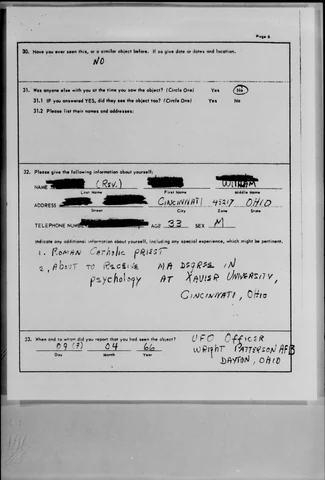 Page 6
30. Have you ever seen this, or a similar object before. If so give date or dates and location.
NO
31. Was anyone else with you at the time you saw the object? (Circle One) Yes No
31.1 IF you answered YES, did they see the object too? (Circle One) Yes No
31.2 Please list their names and addresses:
32. Please give the following information about yourself:
NAME (REV.) WILLIAM
Last Name First Name Middle Name
ADDRESS CINCINNATI 45217 OHIO
Street City Zone State
TELEPHONE NUMBER AGE 33 SEX M
Indicate any additional information about yourself, including any special experience, which might be pertinent.
1. ROMAN CATHOLIC PRIEST
2. ABOUT TO RECEIVE MA DEGREE IN
psychology AT XAVIER UNIVERSITY,
CINCINNATI, OHIO
33. When and to whom did you report that you had seen the object?
UFO OFFICER
09(?) 04 66
WRIGHT PATTERSON AFB
Day Month Year
DAYTON, OHIO